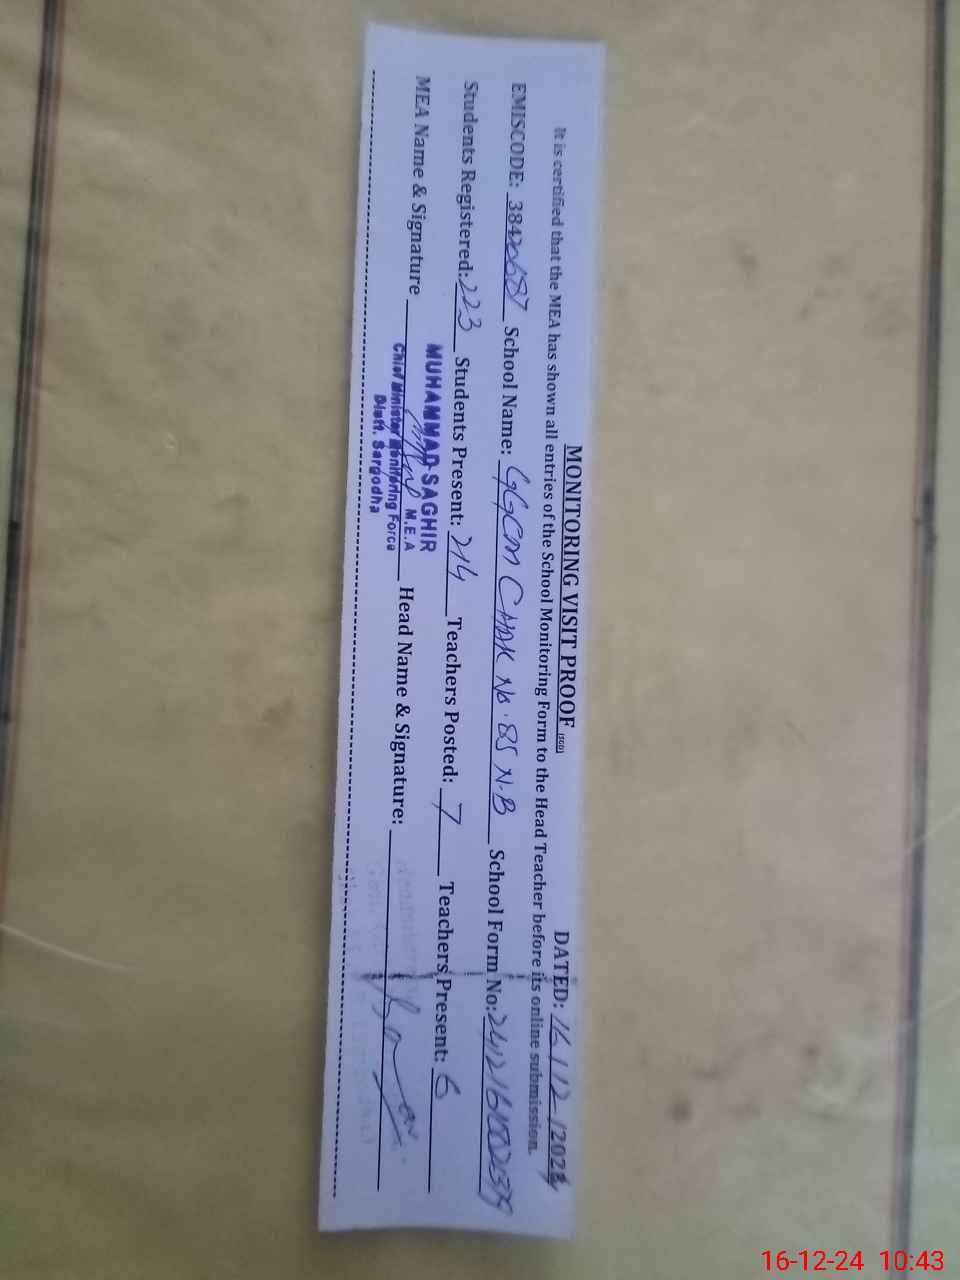 MONITORING VISIT PROOF (SGD) DATED: 16/12/2024
It is certified that the MEA has shown all entries of the School Monitoring Form to the Head Teacher before its online submission.
EMISCODE: 38420687 School Name: GGCM CHAK No. 85 N.B School Form No:
Students Registered: 223 Students Present: 214 Teachers Posted: 7 Teachers Present: 6
MEA Name & Signature Head Name & Signature:
MUHAMMAD SAGHIR
M.E.A
Chief Minister Monitoring Force
Distt. Sargodha
16-12-24 10:43